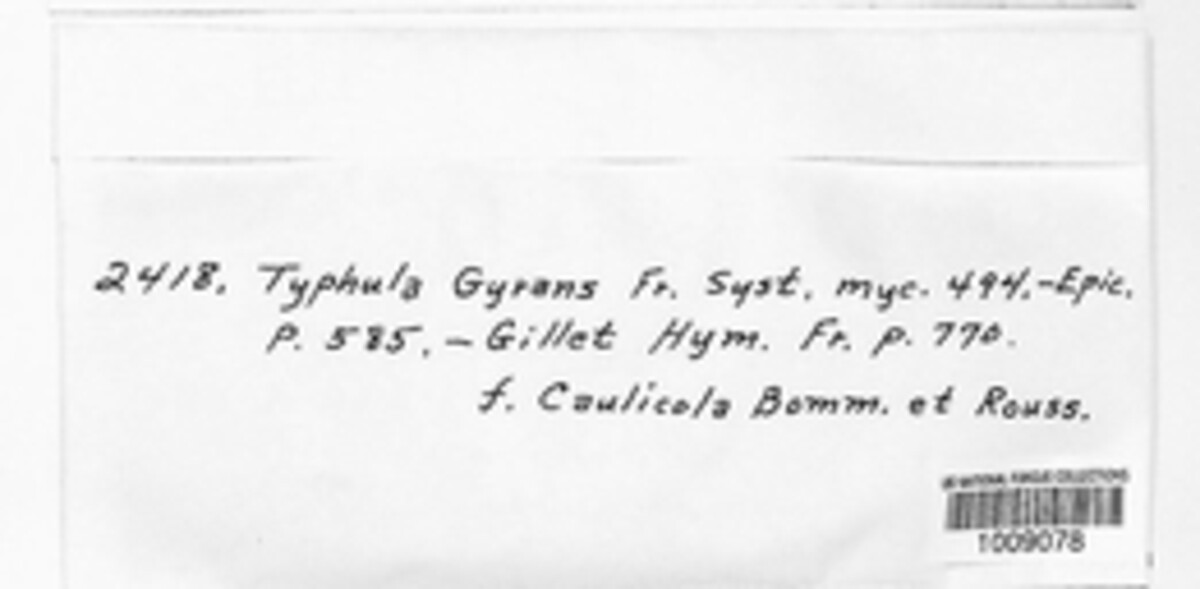 2418. Typhula Gyrans Fr. Syst. myc. 494.-Epic.
P. 585. - Gillet Hym. Fr. p. 770.
f. Caulicola Bomm. et Rouss.
US NATIONAL FUNGUS COLLECTIONS
1009078